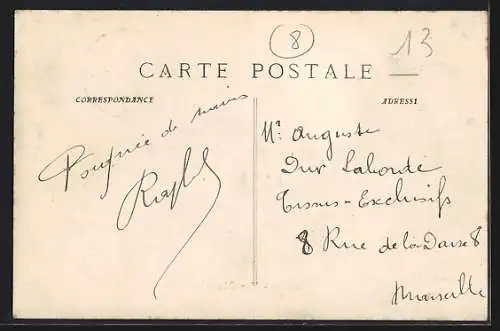 (8)
13
CARTE POSTALE
CORRESPONDANCE
ADRESSE
Poignée de mains
Mr Auguste
Laborde
Tissus-Exclusifs
8 Rue de la Darse 8
Marseille